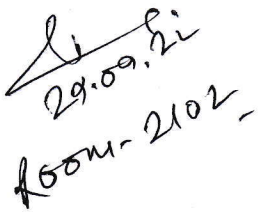 29.09.22
Room-2102